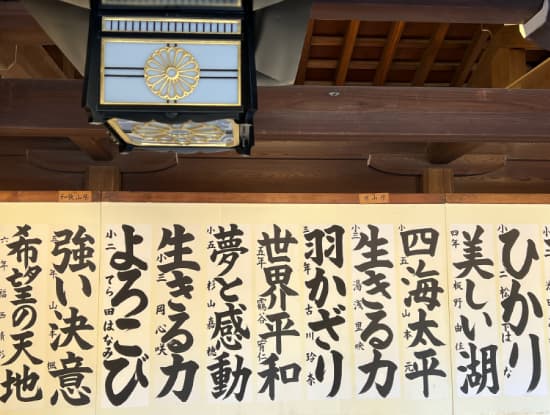 ひかり
小二
美しい湖
四年 板野由佳
四海太平
小五 山本元
生きる力
小三 湯浅里咲
羽かざり
三年 古川玲奈
世界平和
五年
夢と感動
小五 杉山嘉穂
生きる力
小三 岡心咲
よろこび
小二 てら田はなみ
強い決意
希望の天地
六年 福西